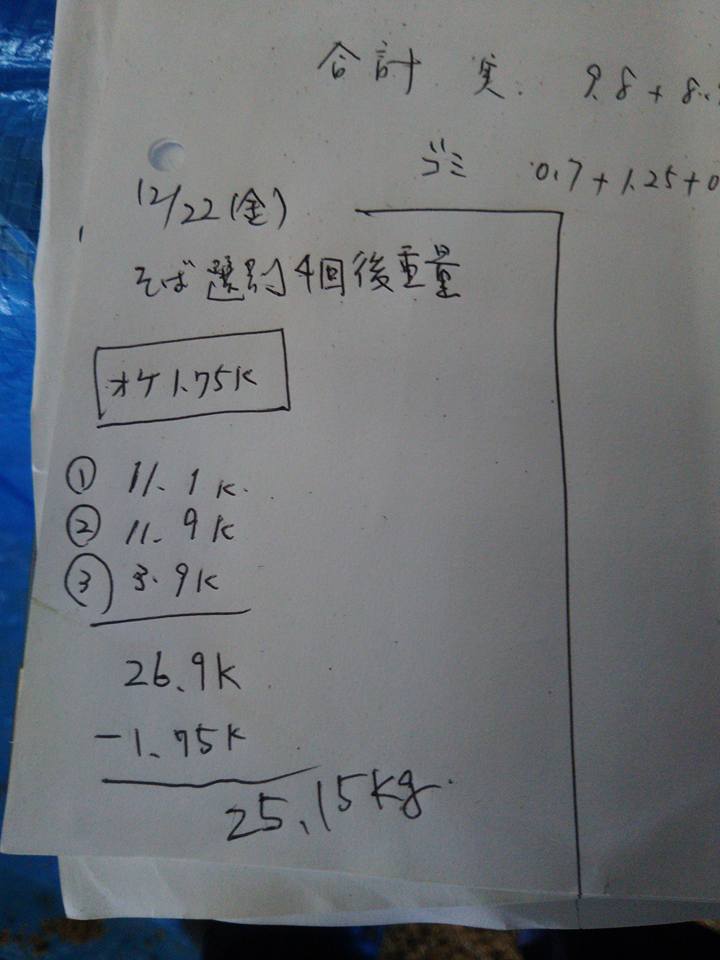 合計 実. 9.8 + 8.
ゴミ 0.7 + 1.25 + 0
12/22 (金)
そば選別4回後重量
オケ1.75K
① 11.1K.
② 11.9K
③ 3.9K
26.9K
-1.75K
25.15kg.